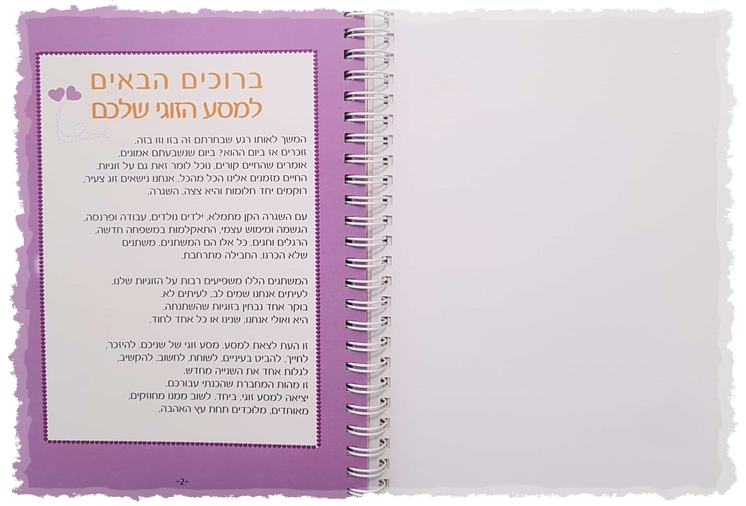 ברוכים הבאים
למסע הזוגי שלכם
המשך לאותו רגע שבחרתם זה בזו וזו בזה.
זוכרים אז ביום ההוא? ביום שנשבעתם אמונים.
אומרים שהחיים קורים, נוכל לומר זאת גם על זוגיות.
החיים מזמנים אלינו הכל מהכל. אנחנו נישאים זוג צעיר,
רוקמים יחד חלומות והיא צצה. השגרה.
עם השגרה הקן מתמלא, ילדים נולדים, עבודה ופרנסה,
הגשמה ומימוש עצמי, התאקלמות במשפחה חדשה,
הרגלים וחגים. כל אלו הם המשתנים. משתנים
שלא הכרנו. החבילה מתרחבת.
המשתנים הללו משפיעים רבות על הזוגיות שלנו.
לעיתים אנחנו שמים לב, לעיתים לא.
בוקר אחד נבחין בזוגיות שהשתנתה.
היא ואולי אנחנו, שנינו או כל אחד לחוד.
זו העת לצאת למסע. מסע זוגי של שניכם. להיזכר,
לחייך, להביט בעיניים, לשוחח, לחשוב, להקשיב,
לגלות אחד את השנייה מחדש.
זו מהות המחברת שהכנתי עבורכם.
יציאה למסע זוגי, ביחד. לשוב ממנו מחוזקים,
מאוחדים, מלוכדים תחת עץ האהבה.
-2-